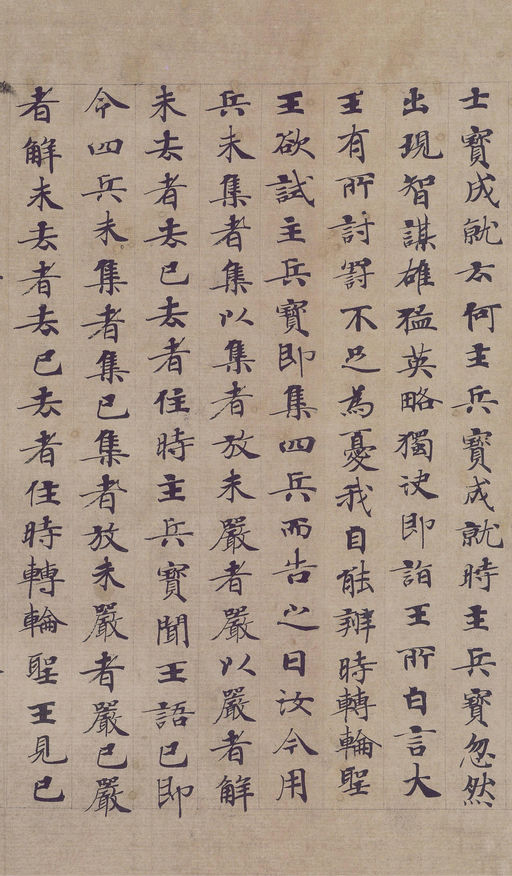 士寶成就云何主兵寶成就時主兵寶忽然
出現智謀雄猛英略獨決即詣王所白言大
王有所討罸不足為憂我自能辦時轉輪聖
王欲試主兵寶即集四兵而告之曰汝今用
兵未集者集以集者放未嚴者嚴以嚴者解
未去者去已去者住時主兵寶聞王語已即
令四兵未集者集已集者放未嚴者嚴已嚴
者解未去者去已去者住時轉輪聖王見已